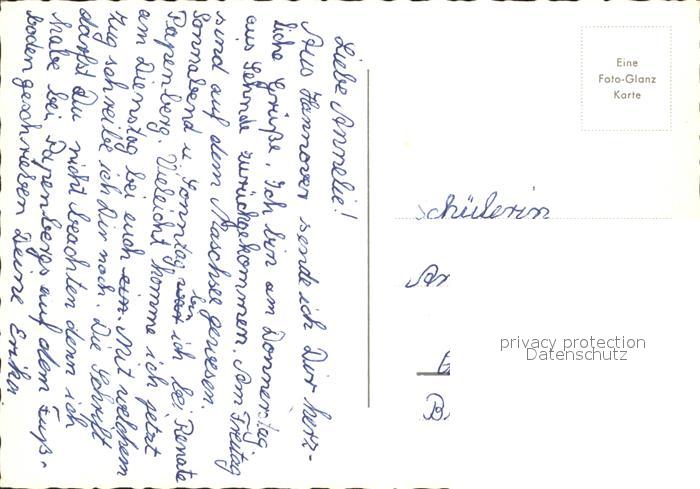 Liebe Annelie!
Aus Hannover sende ich Dir herz-
liche Grüße. Ich bin am Donnerstag
aus Lehnde zurückgekommen. Am Freitag
sind auf dem Maschsee gewesen.
Sonnabend u Sonntag bin ich bei Renate
Papenberg. Vieleicht komme ich jetzt
am Dienstag bei euch ein. Mit welchem
Zug schreibe ich Dir noch. Die Schrift
darfst Du nicht beachten denn ich
habe bei Papenbergs auf dem Fuß-
boden geschrieben Deine Erika
Eine
Foto-Glanz
Karte
Schülerin
An
B
privacy protection
Datenschutz